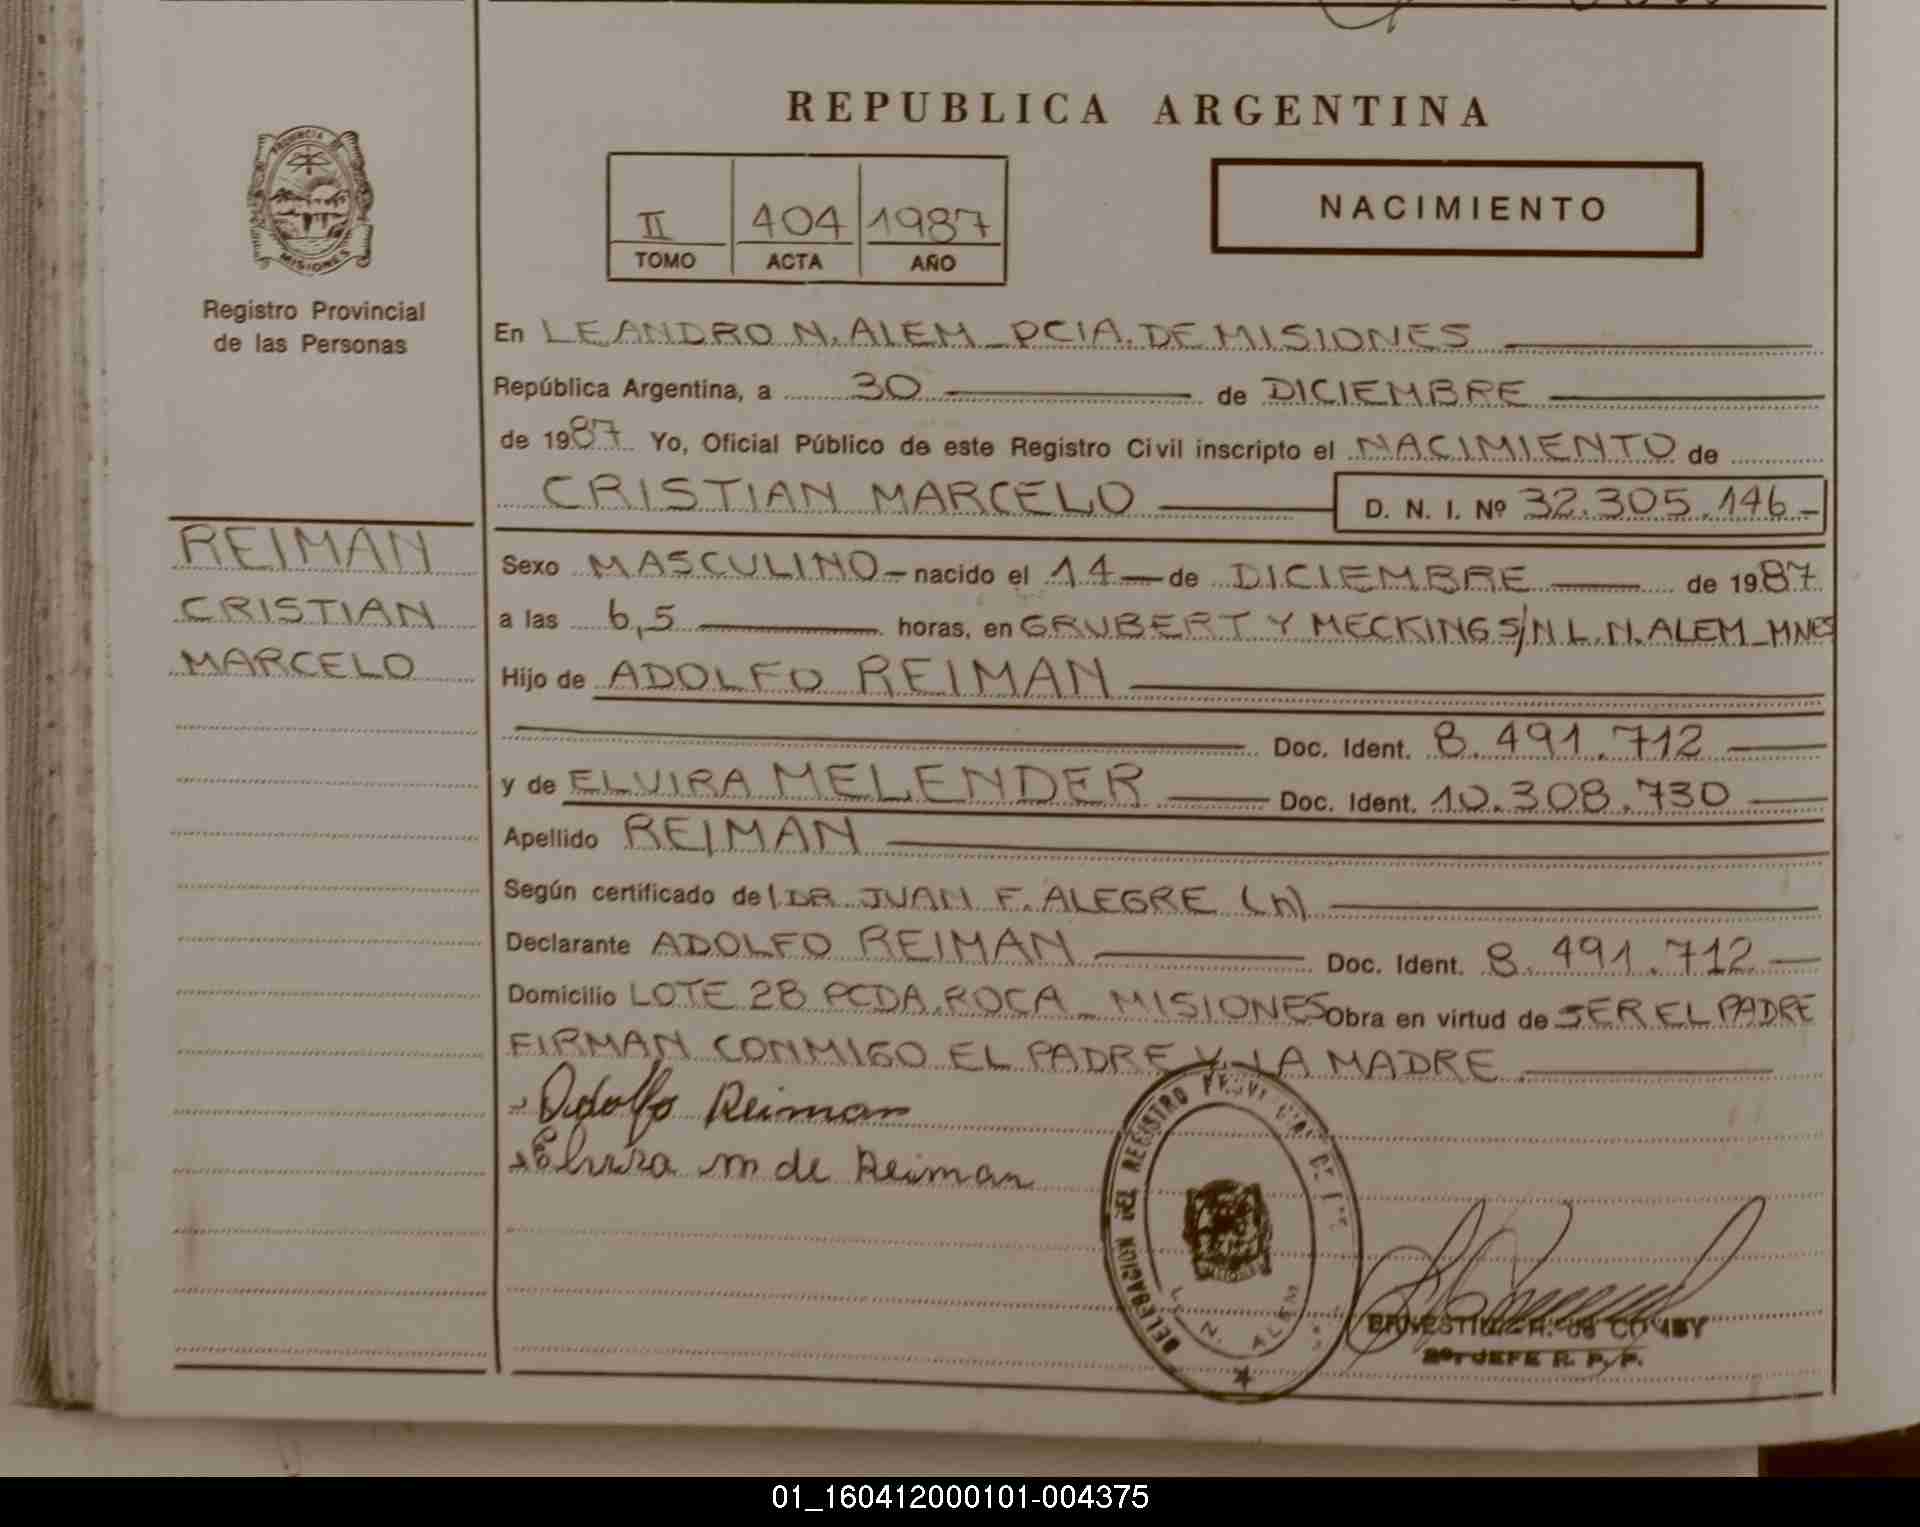 REPUBLICA ARGENTINA
PROVINCIA DE
MISIONES
II 404 1987
TOMO ACTA AÑO
NACIMIENTO
Registro Provincial
de las Personas
En LEANDRO N. ALEM - PCIA. DE MISIONES
República Argentina, a 30 de DICIEMBRE
de 1987 Yo, Oficial Público de este Registro Civil inscripto el NACIMIENTO de
CRISTIAN MARCELO D. N. I. Nº 32.305.146-
REIMAN
CRISTIAN
MARCELO
Sexo MASCULINO - nacido el 14 - de DICIEMBRE de 1987
a las 6,5 horas, en GRUBERT Y MECKING S/N L.N. ALEM - MNES
Hijo de ADOLFO REIMAN
Doc. Ident. 8.491.712
y de ELVIRA MELENDER Doc. Ident. 10.308.730
Apellido REIMAN
Según certificado de DR JUAN F. ALEGRE (h)
Declarante ADOLFO REIMAN Doc. Ident. 8.491.712
Domicilio LOTE 28 PCDA. ROCA - MISIONES Obra en virtud de SER EL PADRE
FIRMAN CONMIGO EL PADRE Y LA MADRE
Adolfo Reiman
Elvira m de Reiman
DELEGACION DEL REGISTRO
N. ALEM
JEFE R. P. P.
01_160412000101-004375